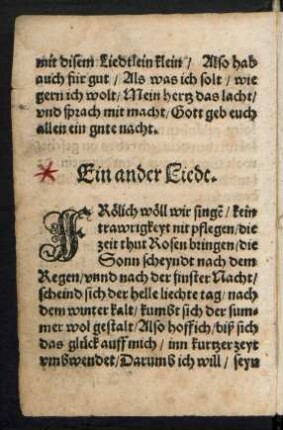 mit disem Liedtlein klein / Also hab
auch für gut / Als was ich solt / wie
gern ich wolt / Mein hertz das lacht /
vnd sprach mit macht / Gott geb euch
allen ein gute nacht.
Ein ander Liedt.
FRölich wöll wir singē / kein
trawrigkeyt nit pflegen / die
zeit thut Rosen bringen / die
Sonn scheyndt nach dem
Regen / vnnd nach der finster Nacht /
scheind sich der helle liechte tag / nach
dem winter kalt / kumbt sich der sum-
mer wol gestalt / Also hoff ich / biß sich
das glück auff mich / inn kurtzer zeyt
vmbwendet / Darumb ich will / seyn